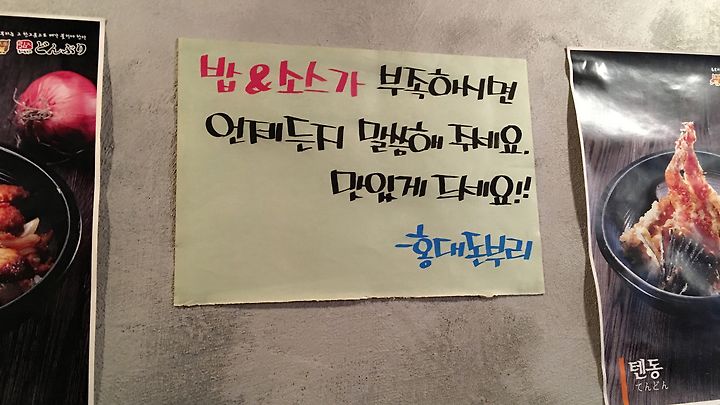 どんぶり
밥&소스가 부족하시면
언제든지 말씀해 주세요.
맛있게 드세요!!
-홍대돈부리
텐동
てんどん